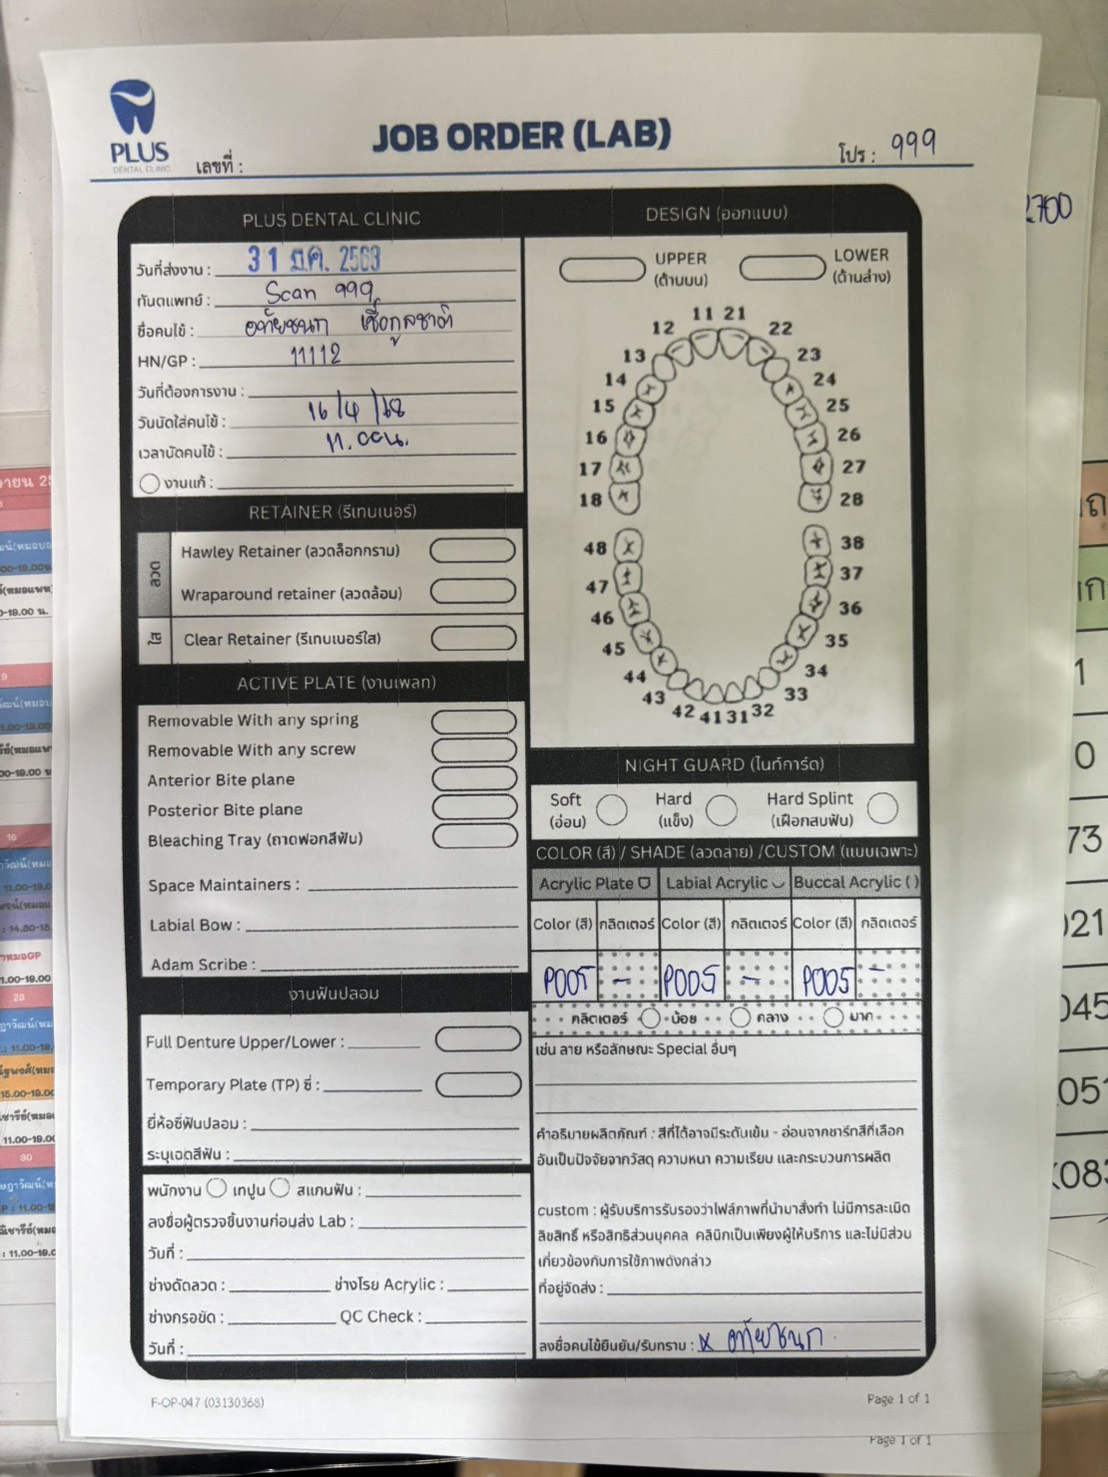 PLUS
DENTAL CLINIC
JOB ORDER (LAB)
เลขที่ :
โปร : 999
2700
PLUS DENTAL CLINIC
วันที่ส่งงาน : 31 มี.ค. 2568
ทันตแพทย์ : Scan 999
ชื่อคนไข้ :
HN/GP : 11112
วันที่ต้องการงาน :
วันนัดใส่คนไข้ : 16/4/68
เวลานัดคนไข้ : 11.00น.
งานแก้ :
RETAINER (รีเทนเนอร์)
ลวด
Hawley Retainer (ลวดล็อกกราม)
Wraparound retainer (ลวดล้อม)
ใส
Clear Retainer (รีเทนเนอร์ใส)
ACTIVE PLATE (งานเพลท)
Removable With any spring
Removable With any screw
Anterior Bite plane
Posterior Bite plane
Bleaching Tray (ถาดฟอกสีฟัน)
Space Maintainers :
Labial Bow :
Adam Scribe :
งานฟันปลอม
Full Denture Upper/Lower :
Temporary Plate (TP) ซี่ :
ยี่ห้อซี่ฟันปลอม :
ระบุเฉดสีฟัน :
พนักงาน เทปูน สแกนฟัน :
ลงชื่อผู้ตรวจชิ้นงานก่อนส่ง Lab :
วันที่ :
ช่างดัดลวด : ช่างโรย Acrylic :
ช่างกรอขัด : QC Check :
วันที่ :
DESIGN (ออกแบบ)
UPPER
(ด้านบน)
LOWER
(ด้านล่าง)
11 21
12 22
13 23
14 24
15 25
16 26
17 27
18 28
48 38
47 37
46 36
45 35
44 34
43 33
42 41 31 32
NIGHT GUARD (ไนท์การ์ด)
Soft
(อ่อน)
Hard
(แข็ง)
Hard Splint
(เฝือกสบฟัน)
COLOR (สี) / SHADE (ลวดลาย) /CUSTOM (แบบเฉพาะ)
Acrylic Plate Labial Acrylic Buccal Acrylic ( )
Color (สี) กลิตเตอร์ Color (สี) กลิตเตอร์ Color (สี) กลิตเตอร์
P005 - P005 - P005 -
กลิตเตอร์ น้อย กลาง มาก
เช่น ลาย หรือลักษณะ Special อื่นๆ
คำอธิบายผลิตภัณฑ์ : สีที่ได้อาจมีระดับเข้ม - อ่อนจากชาร์ทสีที่เลือก
อันเป็นปัจจัยจากวัสดุ ความหนา ความเรียบ และกระบวนการผลิต
custom : ผู้รับบริการรับรองว่าไฟล์ภาพที่นำมาสั่งทำ ไม่มีการละเมิด
ลิขสิทธิ์ หรือสิทธิส่วนบุคคล คลินิกเป็นเพียงผู้ให้บริการ และไม่มีส่วน
เกี่ยวข้องกับการใช้ภาพดังกล่าว
ที่อยู่จัดส่ง :
ลงชื่อคนไข้ยืนยัน/รับทราบ : x
F-OP-047 (03130368)
Page 1 of 1
Page 1 of 1